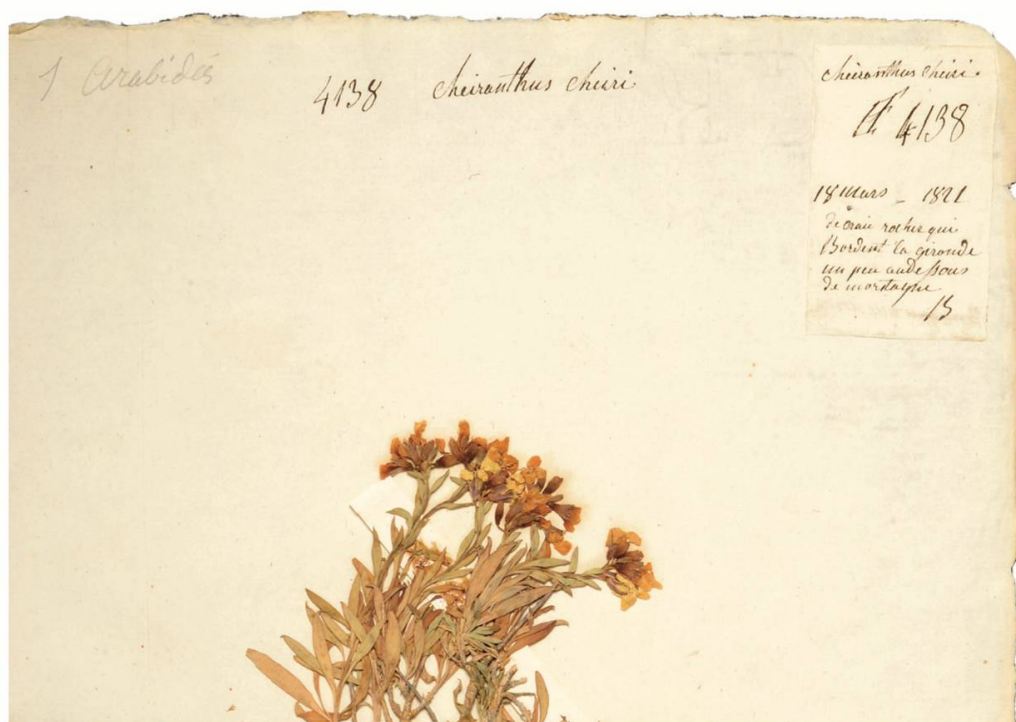 1 Arabidés
4138 cheiranthus cheiri
cheiranthus cheiri.
4138
18 Mars - 1821
de craie rocher qui
Bordent la gironde
un peu au dessous
de mortagne